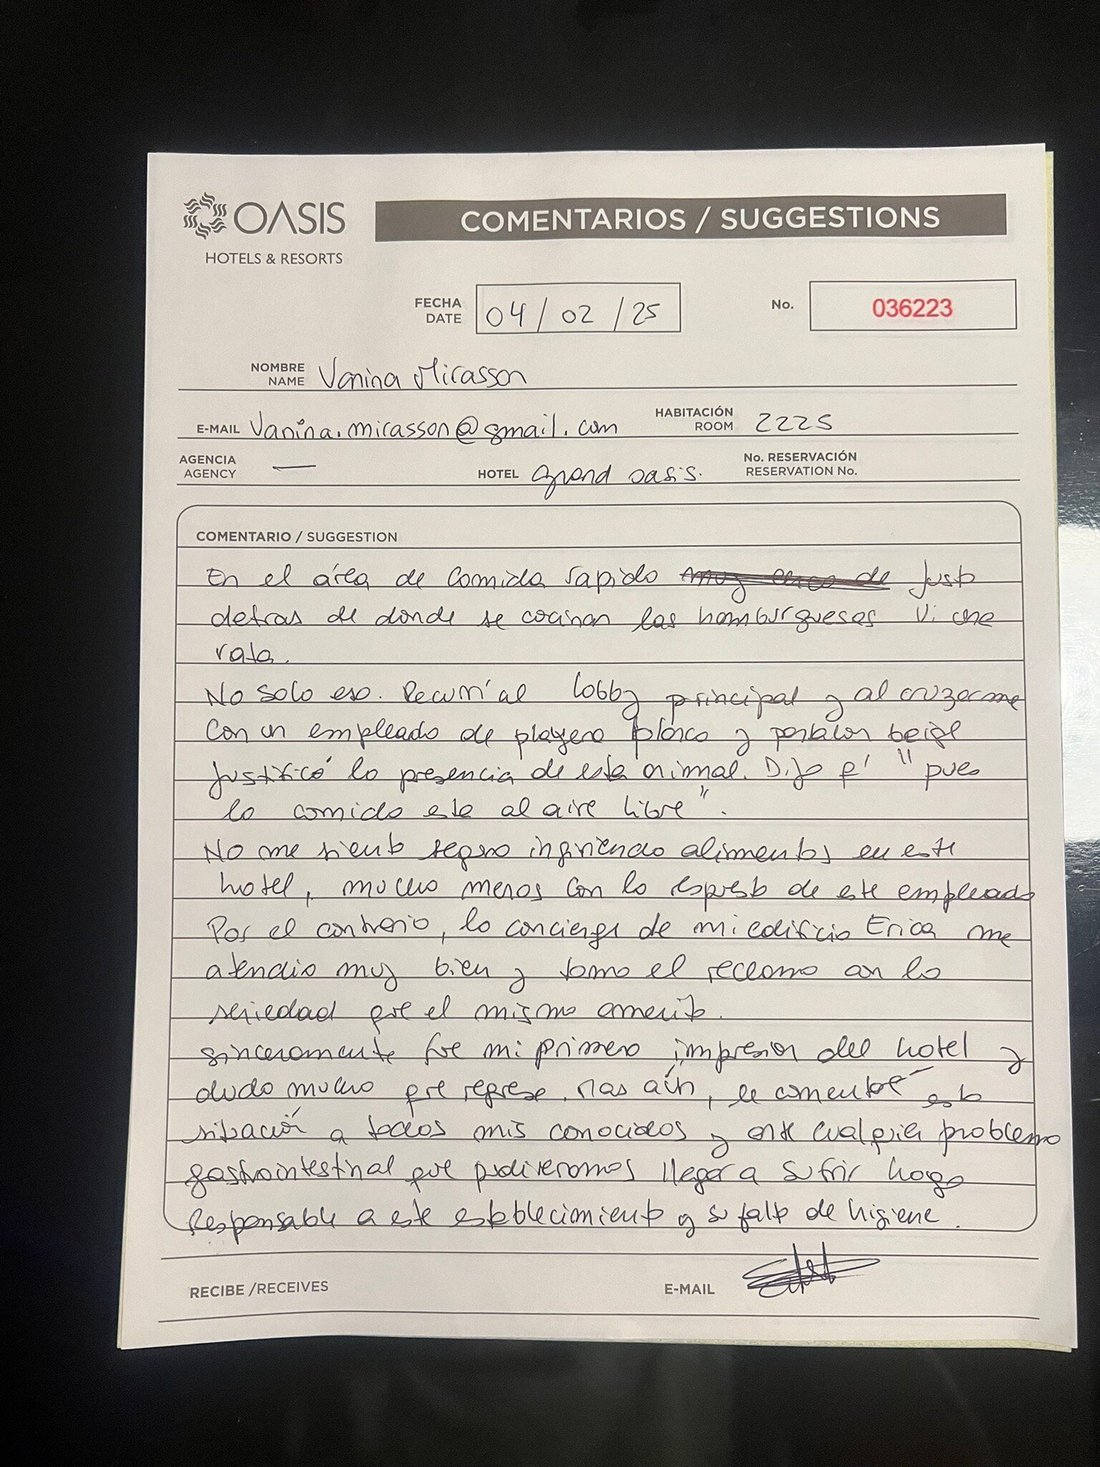 OASIS
HOTELS & RESORTS
COMENTARIOS / SUGGESTIONS
FECHA
DATE
04 / 02 / 25
No.
036223
NOMBRE
NAME
Vanina Micasson
E-MAIL vanina.micasson@gmail.com
HABITACIÓN
ROOM
2225
AGENCIA
AGENCY
—
HOTEL Grand oasis.
No. RESERVACIÓN
RESERVATION No.
COMENTARIO / SUGGESTION
En el área de comida rapida muy cerca de justo
detras de donde se cocinan las hamburguesas vi una
rata.
No solo eso. Recurrí al lobby principal y al cruzarme
con un empleado de playera blanca y pantalon beige
justificó la presencia de este animal. Dijo q' "pues
la comida esta al aire libre".
No me siento segura ingiriendo alimentos en este
hotel, mucho menos con la respuesta de este empleado
Por el contrario, la concierge de mi edificio Erica me
atendio muy bien y tomo el reclamo con la
seriedad que el mismo amerita.
sinceramente fue mi primera impresion del hotel y
dudo mucho que regrese. Mas aún, le comentaré esta
situación a todos mis conocidos y ante cualquier problema
gastrointestinal que pudieramos llegar a sufrir hago
responsable a este establecimiento y su falta de higiene.
RECIBE /RECEIVES
E-MAIL